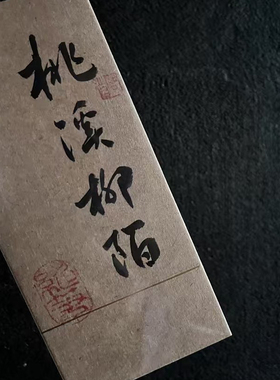 桃溪柳陌